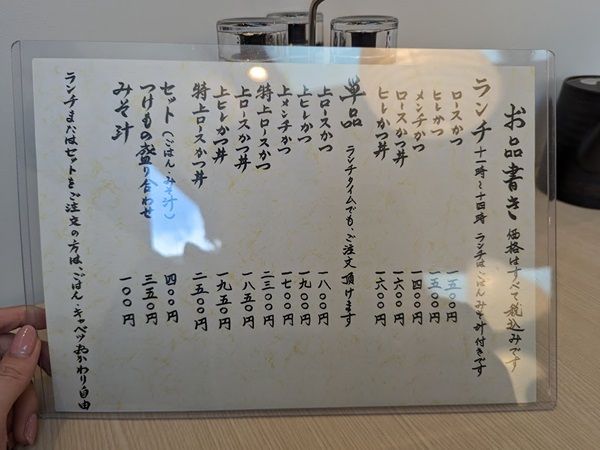 お品書き 価格はすべて税込みです
ランチ 十一時～十四時 ランチはごはんみそ汁付きです
ロースかつ 一五〇〇円
ヒレかつ 一五〇〇円
メンチかつ 一四〇〇円
ロースかつ丼 一六〇〇円
ヒレかつ丼 一六〇〇円
単品 ランチタイムでも、ご注文頂けます
上ロースかつ 一八〇〇円
上ヒレかつ 一九〇〇円
上メンチかつ 一七〇〇円
特上ロースかつ 二三〇〇円
上ロースかつ丼 一八五〇円
上ヒレかつ丼 一九五〇円
特上ロースかつ丼 二五〇〇円
セット（ごはん・みそ汁） 四〇〇円
つけもの盛り合わせ 三五〇円
みそ汁 一〇〇円
ランチまたはセットをご注文の方は、ごはん・キャベツおかわり自由